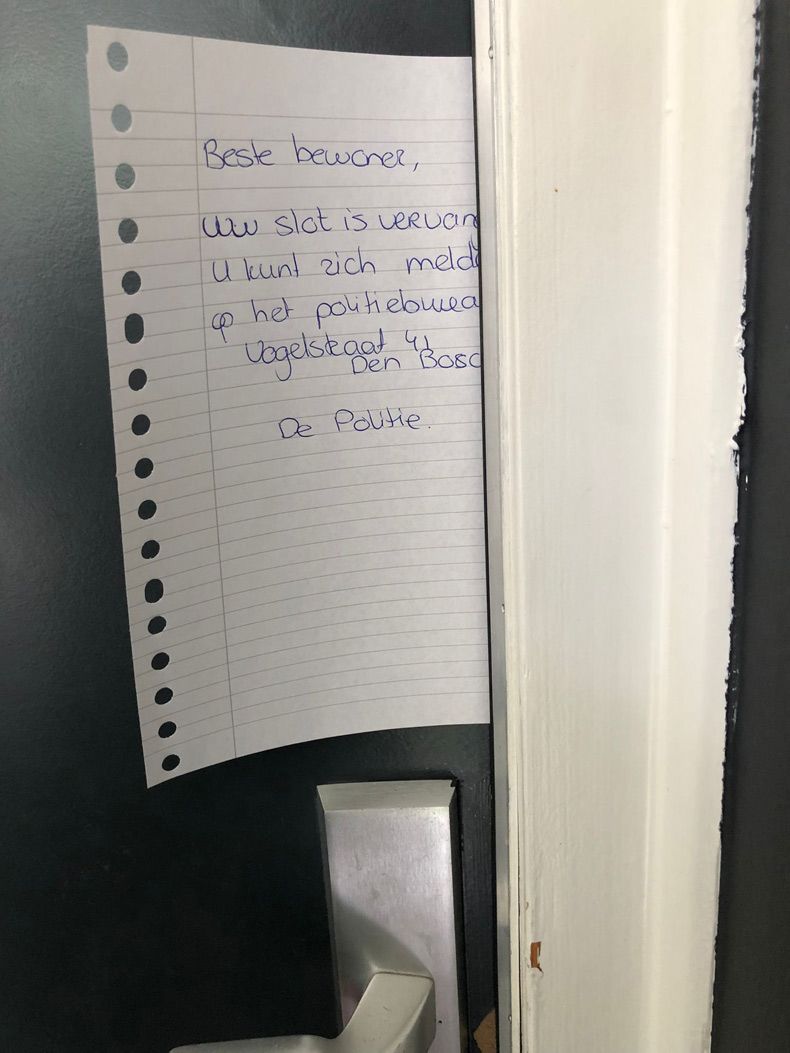 Beste bewoner,
uw slot is vervan
U kunt zich meld
op het politiebureau
Vogelstraat 41
Den Bosc
De Politie.